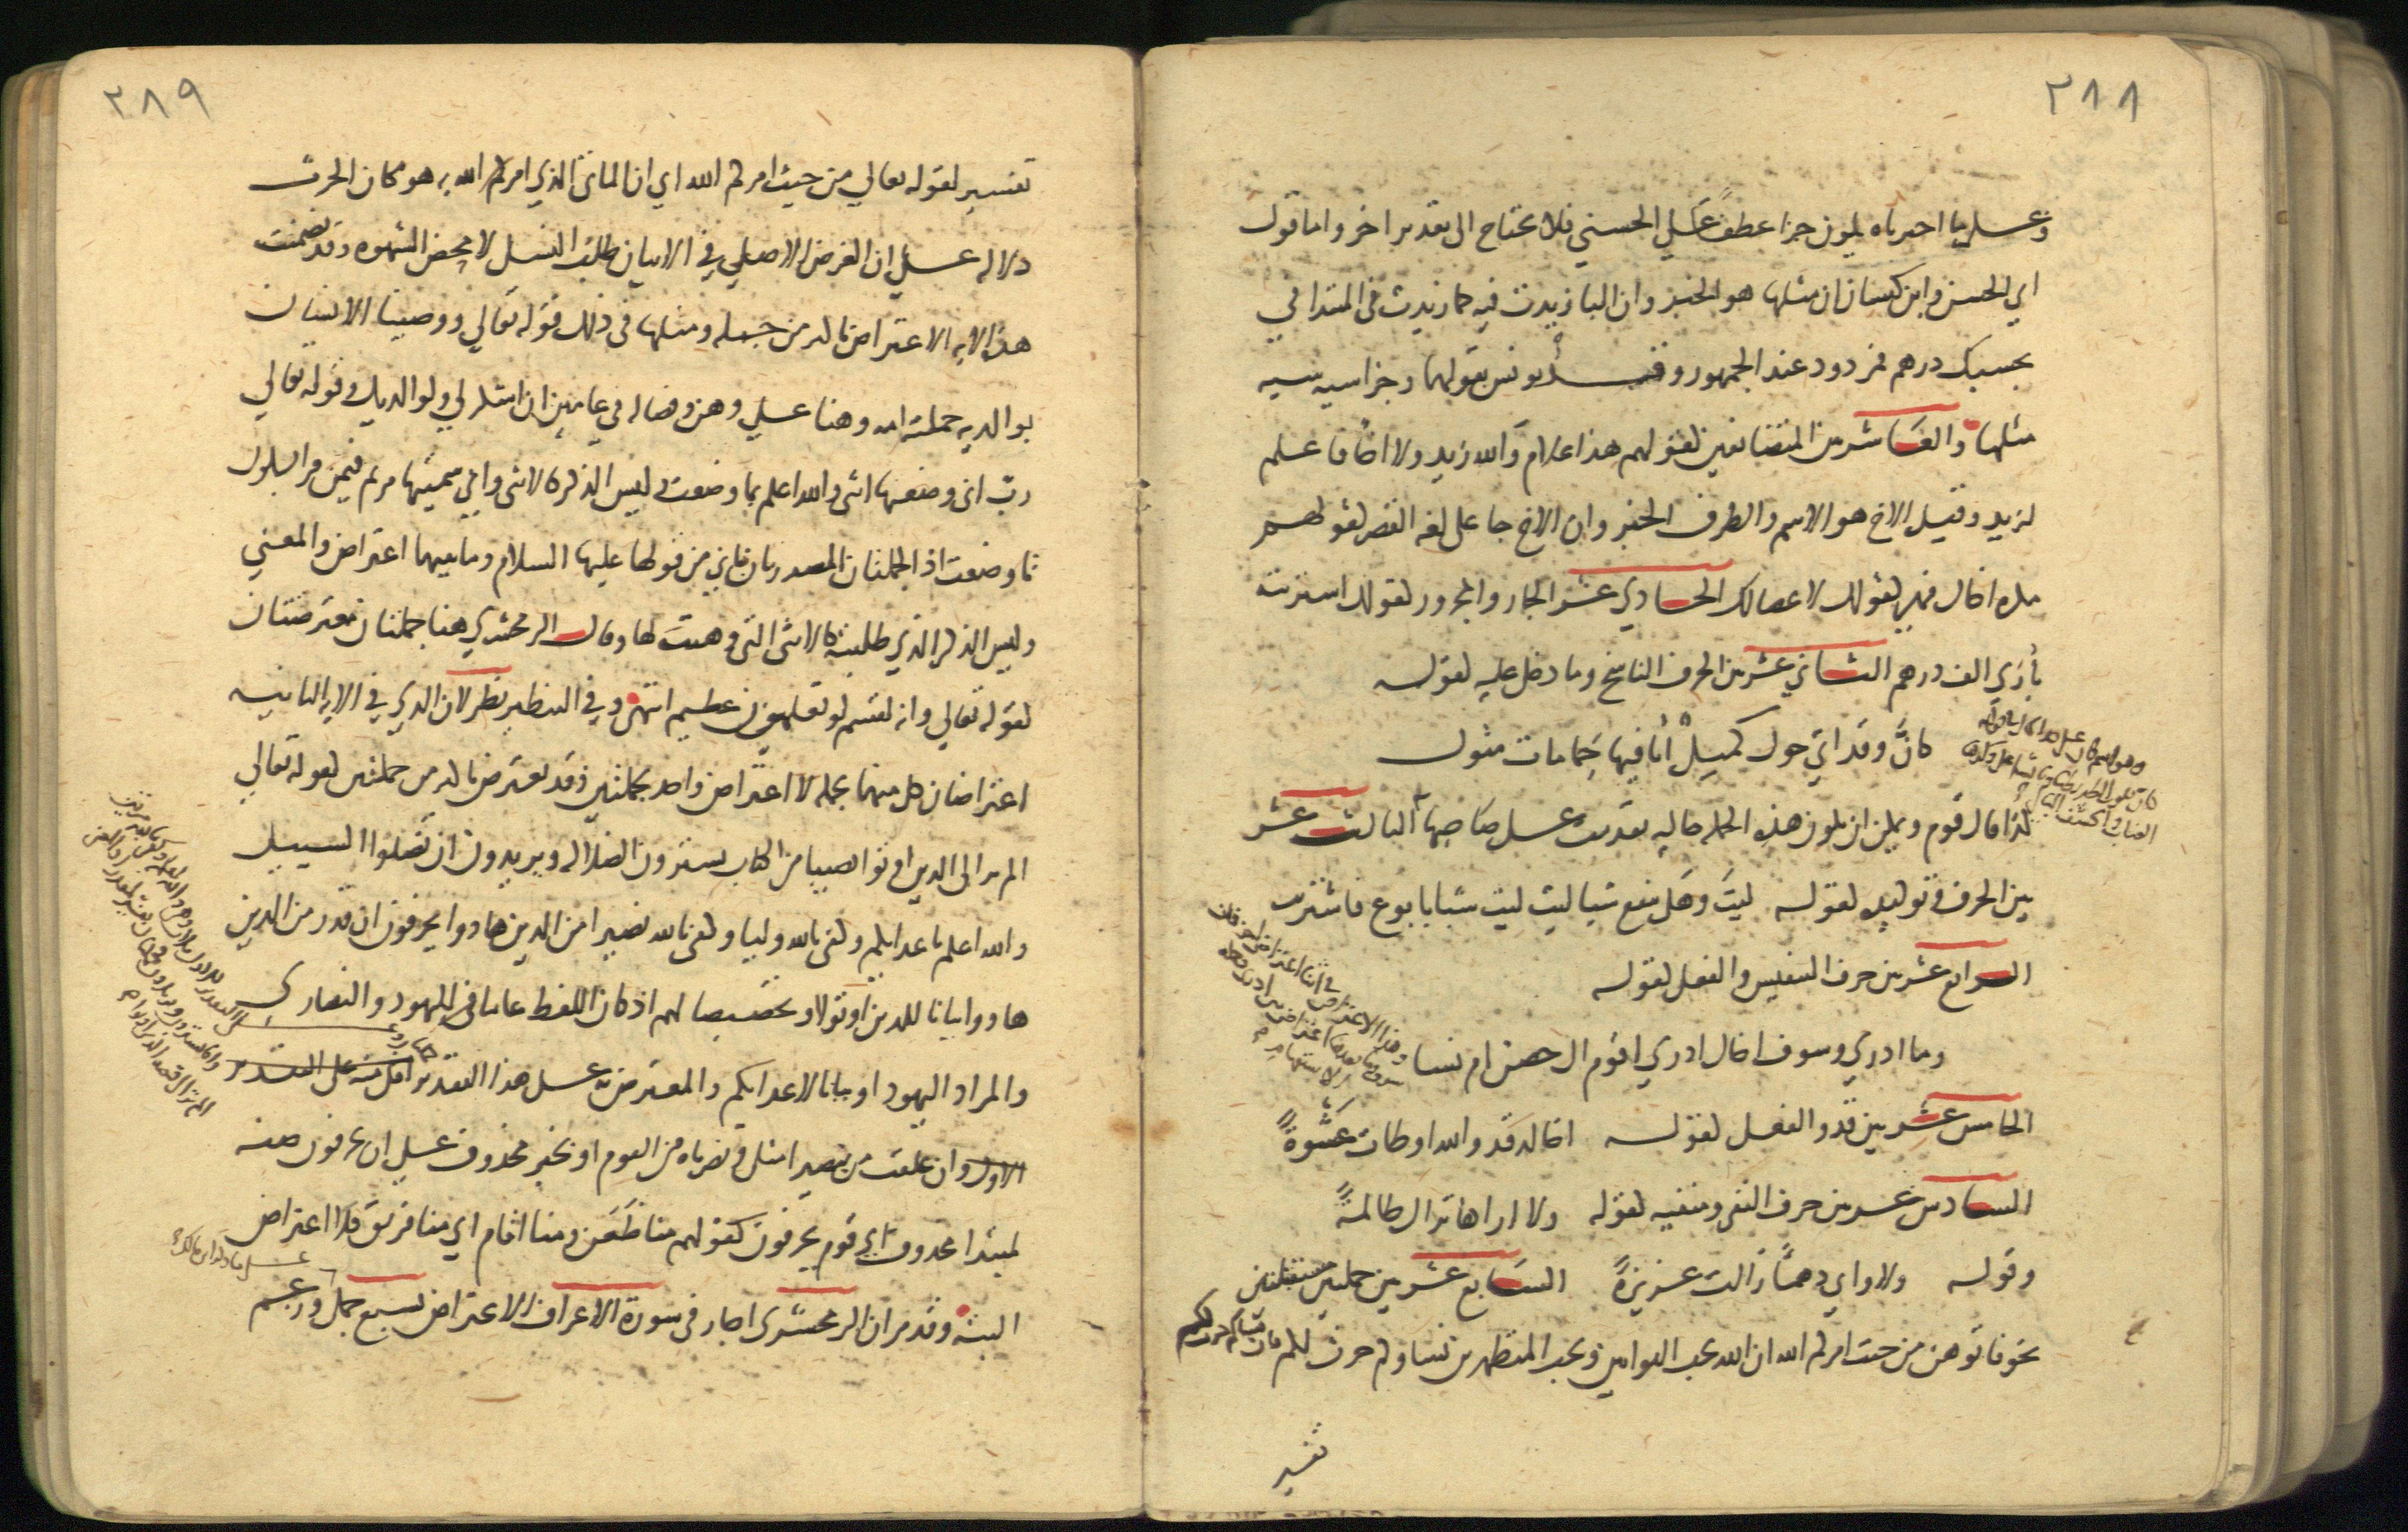 ٢٨٨
وعلى ما اخترناه يكون جزا عطف على الحسنى فلا يحتاج الى تقدير اخر واما قول
ابي الحسن وابن كيسان ان مثلها هو الخبر وان البا زيدت فيه كما زيدت في المبتدا في
بحسبك درهم فمردود عند الجمهور وقد يونس بقولهما وجزا سيه سيه
مثلها والعاشر بين المتضايفين كقولهم هذا غلام والله زيد ولا اخا فاعلم
لزيد وقيل الاخ هو الاسم والظرف الخبر وان الاخ جا على لغه القصر كقولهم
مكره اخاك فهو كقولك لا عصا لك الحادي عشر الجار والمجرور كقولك اشتريته
بأرى الف درهم الثاني عشر بين الحرف الناسخ وما دخل عليه كقوله
كأنّ وقد اتى حول كميل أثافيها حمامات مثول
كذا قال قوم ويمكن ان يكون هذه الجمله حاليه تقدمت على صاحبها الثالث عشر
بين الحرف وتوكيده كقوله ليت وهل ينفع شيا ليت ليت شبابا بوع فاشتريت
الرابع عشر بين حرف التنفيس والفعل كقوله
وما ادري وسوف اخال ادري اقوم ال حصن ام نسا
وهذا الاعتراض في اثنا اعتراض اخر فان
سوف وما بعدها اعتراض بين ادري وجمله
الاستفهام
الخامس عشر بين قد والفعل كقوله اخالد قد والله اوطات عشوة
السادس عشر بين حرف النفي ومنفيه كقوله ولا اراها تزال ظالمة
وقوله ولا وابي دهماء زالت عزيزة السابع عشر بين جملتين مستقلتين
نحو فاتوهن من حيث امركم الله ان الله يحب التوابين ويحب المتطهرين نساوكم حرث لكم فان نساكم حرث لكم
تفسير
٢٨٩
تفسير لقوله تعالي من حيث امركم الله اي ان الماتى الذي امركم الله به هو مكان الحرث
دلاله على ان الغرض الاصلي في الاتيان طلب النسل لا محض الشهوه وقد تضمنت
هذه الايه الاعتراض باكثر من جمله ومثلها في ذلك قوله تعالي ووصينا الانسان
بوالديه حملته امه وهنا على وهن وفصاله في عامين ان اشكر لي ولوالديك وقوله تعالي
رب اني وضعتها انثى والله اعلم بما وضعت وليس الذكر كالانثى واني سميتها مريم فيمن قرا بسكون
تا وضعت اذ الجملتان المصدرتان باني من قولها عليها السلام وما بينهما اعتراض والمعني
وليس الذكر الذي طلبته كالانثى التي وهبت لها وقال الزمخشري هنا جملتان معترضتان
كقوله تعالي وانه لقسم لو تعلمون عظيم انتهى وفي التنظير نظر لان الذي في الايه الثانيه
اعتراضان كل منهما بجمله لا اعتراض واحد بجملتين وقد يعترض باكثر من جملتين كقوله تعالي
الم تر الى الذين اوتوا نصيبا من الكتاب يشترون الضلاله ويريدون ان تضلوا السبيل
والله اعلم باعدايكم وكفى بالله وليا وكفى بالله نصيرا من الذين هادوا يحرفون ان قدر من الذين
هادوا بيانا للذين اوتوا وتخصيصا لهم اذ كان اللفظ عاما في اليهود والنصارى
والمراد اليهود او بيانا لاعدايكم والمعترض به على هذا التقدير
الاول وان علقت من بنصير امثل ونصرناه من القوم او بخبر محذوف على ان يحرفون صفه
لمبتدا محذوف اي قوم يحرفون كقولهم منا ظعن ومنا اقام اي منا فريق فلا اعتراض
البته وقد مر ان الزمخشرى اجاز في سورة الاعراف الاعتراض بسبع جمل وزعم